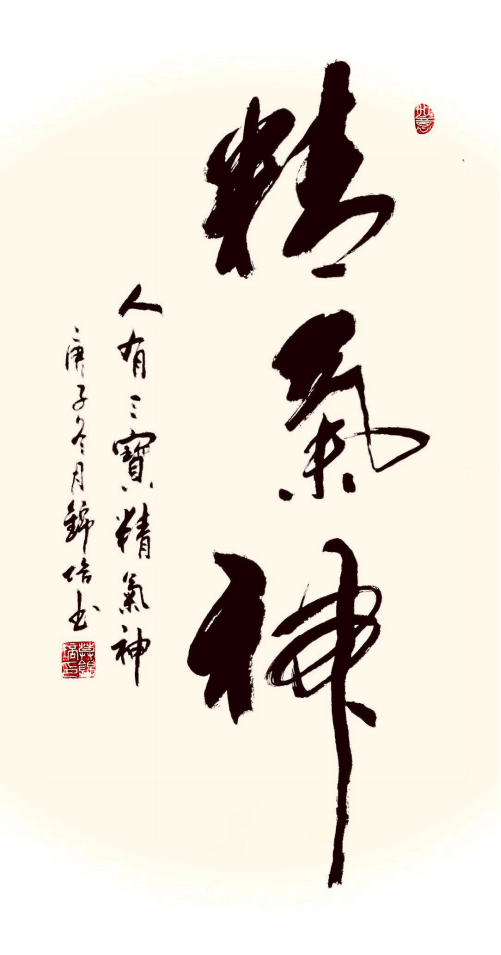 精氣神
人有三寶精氣神
庚子冬月錦培书